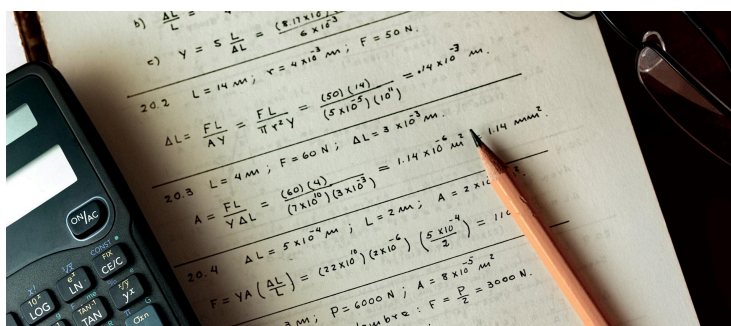 b) ΔL/L =
c) Y = S L/ΔL = (8.17×10 / 6×10⁻³
20.2 L = 14 m ; r = 4×10⁻³ m ; F = 50 N.
ΔL = FL/AY = FL/πr²Y = (50)(14)/(5×10⁻⁵)(10¹¹) = .14×10⁻³ m.
20.3 L = 4 m ; F = 60 N ; ΔL = 3×10⁻³ m.
A = FL/YΔL = (60)(4)/(7×10¹⁰)(3×10⁻³) = 1.14×10⁻⁶ m² = 1.14 mm².
20.4 ΔL = 5×10⁻⁴ m ; L = 2 m ; A = 2×10
F = YA(ΔL/L) = (22×10¹⁰)(2×10⁻⁶)(5×10⁻⁴/2) = 110
3 m ; P = 6000 N ; A = 8×10⁻⁵ m²
: F = P/2 = 3000 N.
ON/AC
CONST
FIX
CE/C
x!
10ˣ
LOG
eˣ
LN
TAN⁻¹
TAN
yˣ